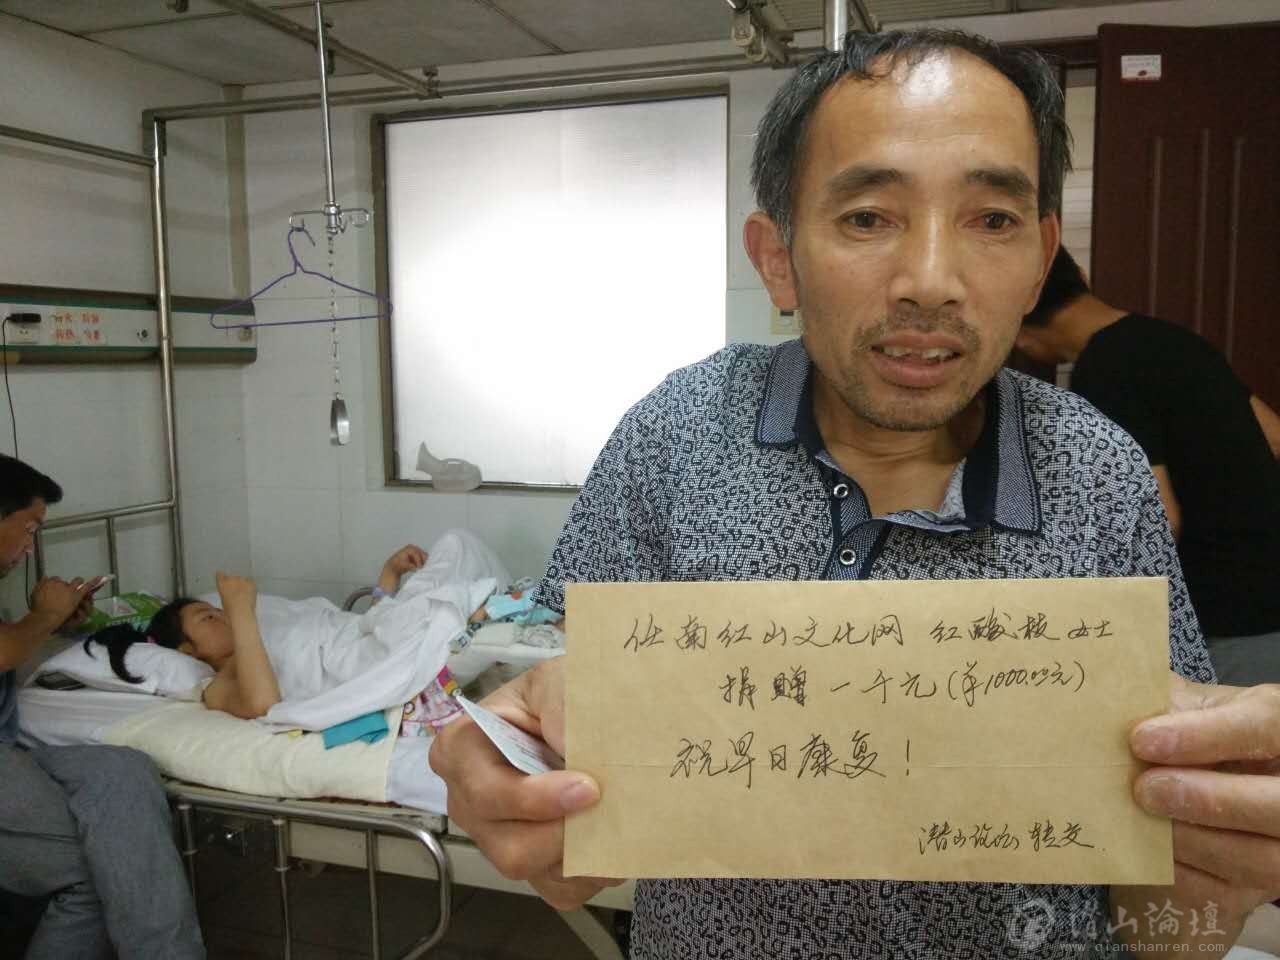 红山文化网 红酸枝女士
捐赠一千元(¥1000.00元)
祝早日康复!
潜山论坛 转交.
论壇
www.qianshanren.com